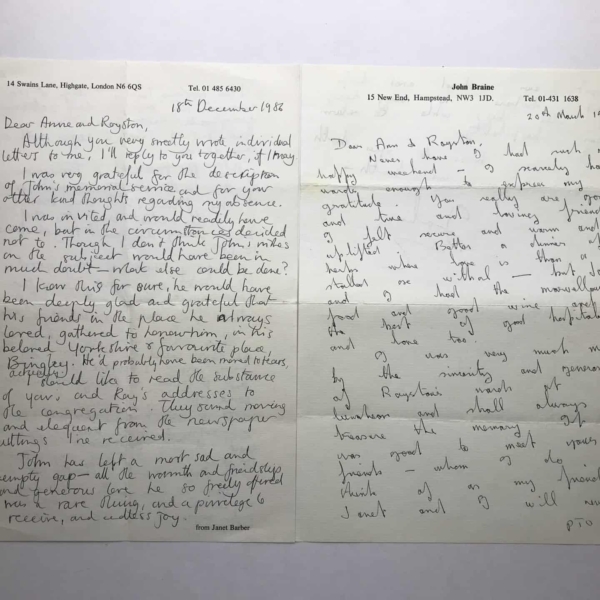 14 Swains Lane, Highgate, London N6 6QS Tel. 01 485 6430
18th December 1986
Dear Anne and Royston,
Although you very sweetly wrote individual
letters to me, I'll reply to you together, if I may
I was very grateful for the description
of John's memorial service and for your
other kind thoughts regarding my absence.
I was invited, and would readily have
come, but in the circumstances decided
not to. Though I don't think John's wishes
on the subject would have been in
much doubt — what else could be done?
I know this for sure, he would have
been deeply glad and grateful that
his friends in the place he always
loved gathered to honour him, in his
beloved Yorkshire & favourite place,
Bingley. He'd probably have been moved to tears,
actually.
I should like to read the substance
of yours and Ray's addresses to
the congregation. They sound moving
and eloquent from the newspaper
cuttings I've received.
John has left a most sad and
empty gap — all the warmth and friendship
and generous love he so freely offered
was a rare thing, and a privilege to
receive, and endless joy.
from Janet Barber
John Braine
15 New End, Hampstead, NW3 1JD. Tel. 01-431 1638
20th March
Dear Ann & Royston,
Never have I had such a
happy weekend — I scarcely have
words enough to express my
gratitude. You really are good
and true and loving friends
I felt secure and warm and
uplifted. Better a dinner of
herbs where love is than a
stalled ox withal — but
and I had the marvellous
food and good wine and
the best of good
and love too.
I was very much moved
by the sincerity and
of Royston's words at
luncheon and shall always
treasure the memory. It
was good to meet your
friends — whom I do
think of as my friends
Janet and I will
PTO